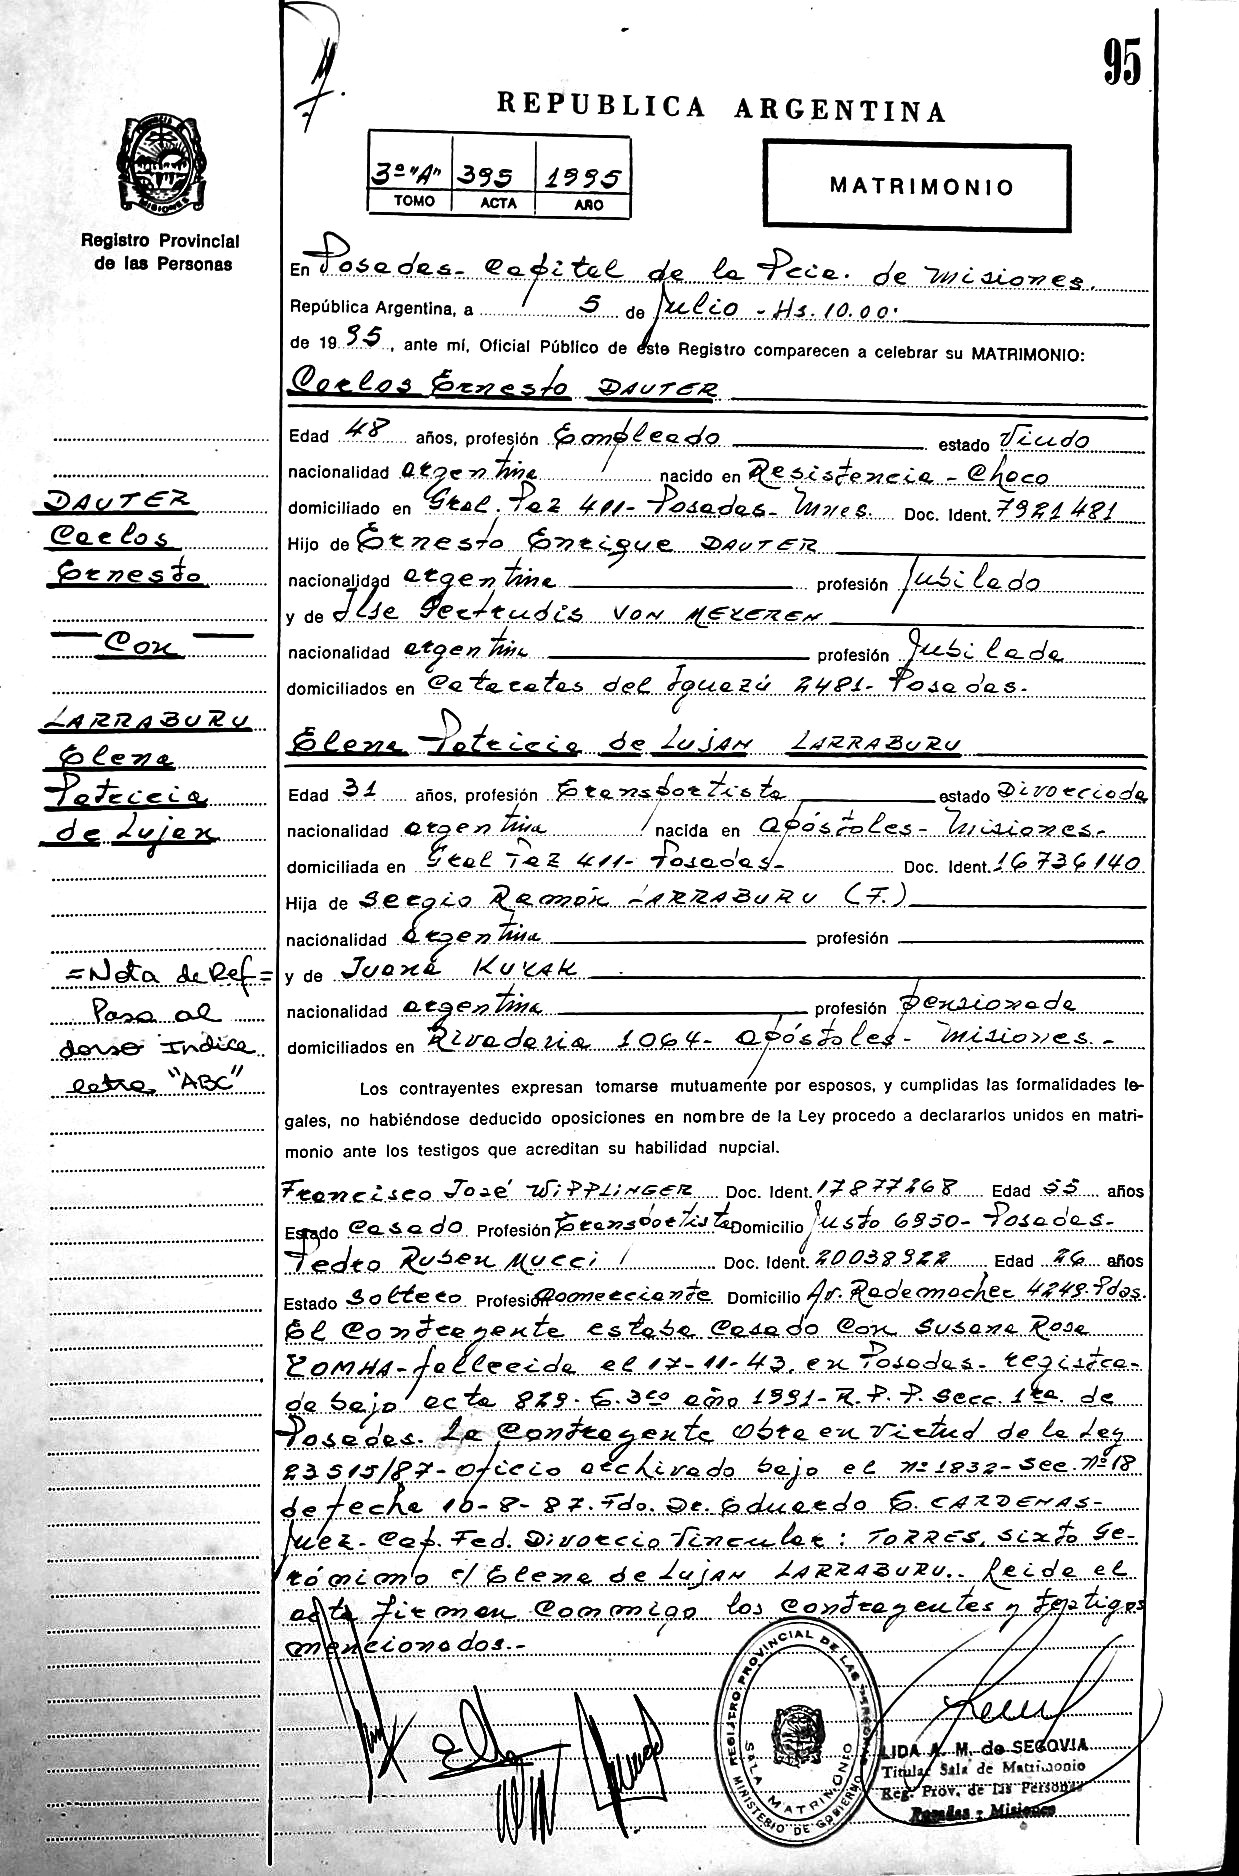 95
REPUBLICA ARGENTINA
3º "A" 395 1995
TOMO ACTA AÑO
MATRIMONIO
MISIONES
Registro Provincial
de las Personas
En Posadas - Capital de la Pcia. de Misiones.
República Argentina, a 5 de Julio - Hs. 10.00.
de 1995, ante mí, Oficial Público de éste Registro comparecen a celebrar su MATRIMONIO:
Carlos Ernesto DAUTER
Edad 48 años, profesión Empleado estado Viudo
nacionalidad argentina nacido en Resistencia - Chaco
domiciliado en Gral. Paz 411- Posadas- Mnes. Doc. Ident. 7921481
Hijo de Ernesto Enrique DAUTER
nacionalidad argentina profesión Jubilado
y de Ilse Gertrudis VON MEYEREN
nacionalidad argentina profesión Jubilada
domiciliados en Cataratas del Iguazú 2481- Posadas.
Elena Patricia de Luján LARRABURU
Edad 31 años, profesión Transportista estado Divorciada
nacionalidad argentina nacida en Apóstoles- Misiones-
domiciliada en Gral Paz 411- Posadas- Doc. Ident. 16736140
Hija de Sergio Ramón LARRABURU (F.)
nacionalidad argentina profesión
y de Juana KUZAK
nacionalidad argentina profesión pensionada
domiciliados en Rivadavia 1064- Apóstoles- Misiones.-
Los contrayentes expresan tomarse mutuamente por esposos, y cumplidas las formalidades le-
gales, no habiéndose deducido oposiciones en nombre de la Ley procedo a declararlos unidos en matri-
monio ante los testigos que acreditan su habilidad nupcial.
Francisco José WIPPLINGER Doc. Ident. 17877268 Edad 55 años
Estado Casado Profesión Transportista Domicilio Justo 6950- Posadas-
Pedro Ruben Mucci Doc. Ident. 20038922 Edad 26 años
Estado Soltero Profesión Comerciante Domicilio Av. Rademacher 4249- Pdas.
El Contrayente estaba Casado Con Susana Rosa
ZOMHA- fallecida el 17-11-43. en Posadas- registra-
da bajo acta 829- T. 3ro año 1991- R.P.P. Secc. 1ra. de
Posadas. La Contrayente Obra en Virtud de la Ley
23515/87- Oficio archivado bajo el nº 1832- Sec. Nº 18
de fecha 10-8-87. Fdo. Dr. Eduardo E. CARDENAS-
Juez- Cap. Fed. Divorcio Vincular: TORRES, Sixto Ge-
rónimo c/ Elena de Luján LARRABURU.- Leída el
acta firman Conmigo los Contrayentes y testigos
mencionados.-
DAUTER
Carlos
Ernesto
Con
LARRABURU
Elena
Patricia
de Lujan
=Nota de Ref=
Pasa al
dorso Indice
letra "ABC"
REGISTRO PROVINCIAL DE LAS PERSONAS
SALA MATRIMONIO
MINISTERIO DE GOBIERNO
LIDA A. M. de SEGOVIA
Titular Sala de Matrimonio
Reg. Prov. de las Personas
Posadas - Misiones